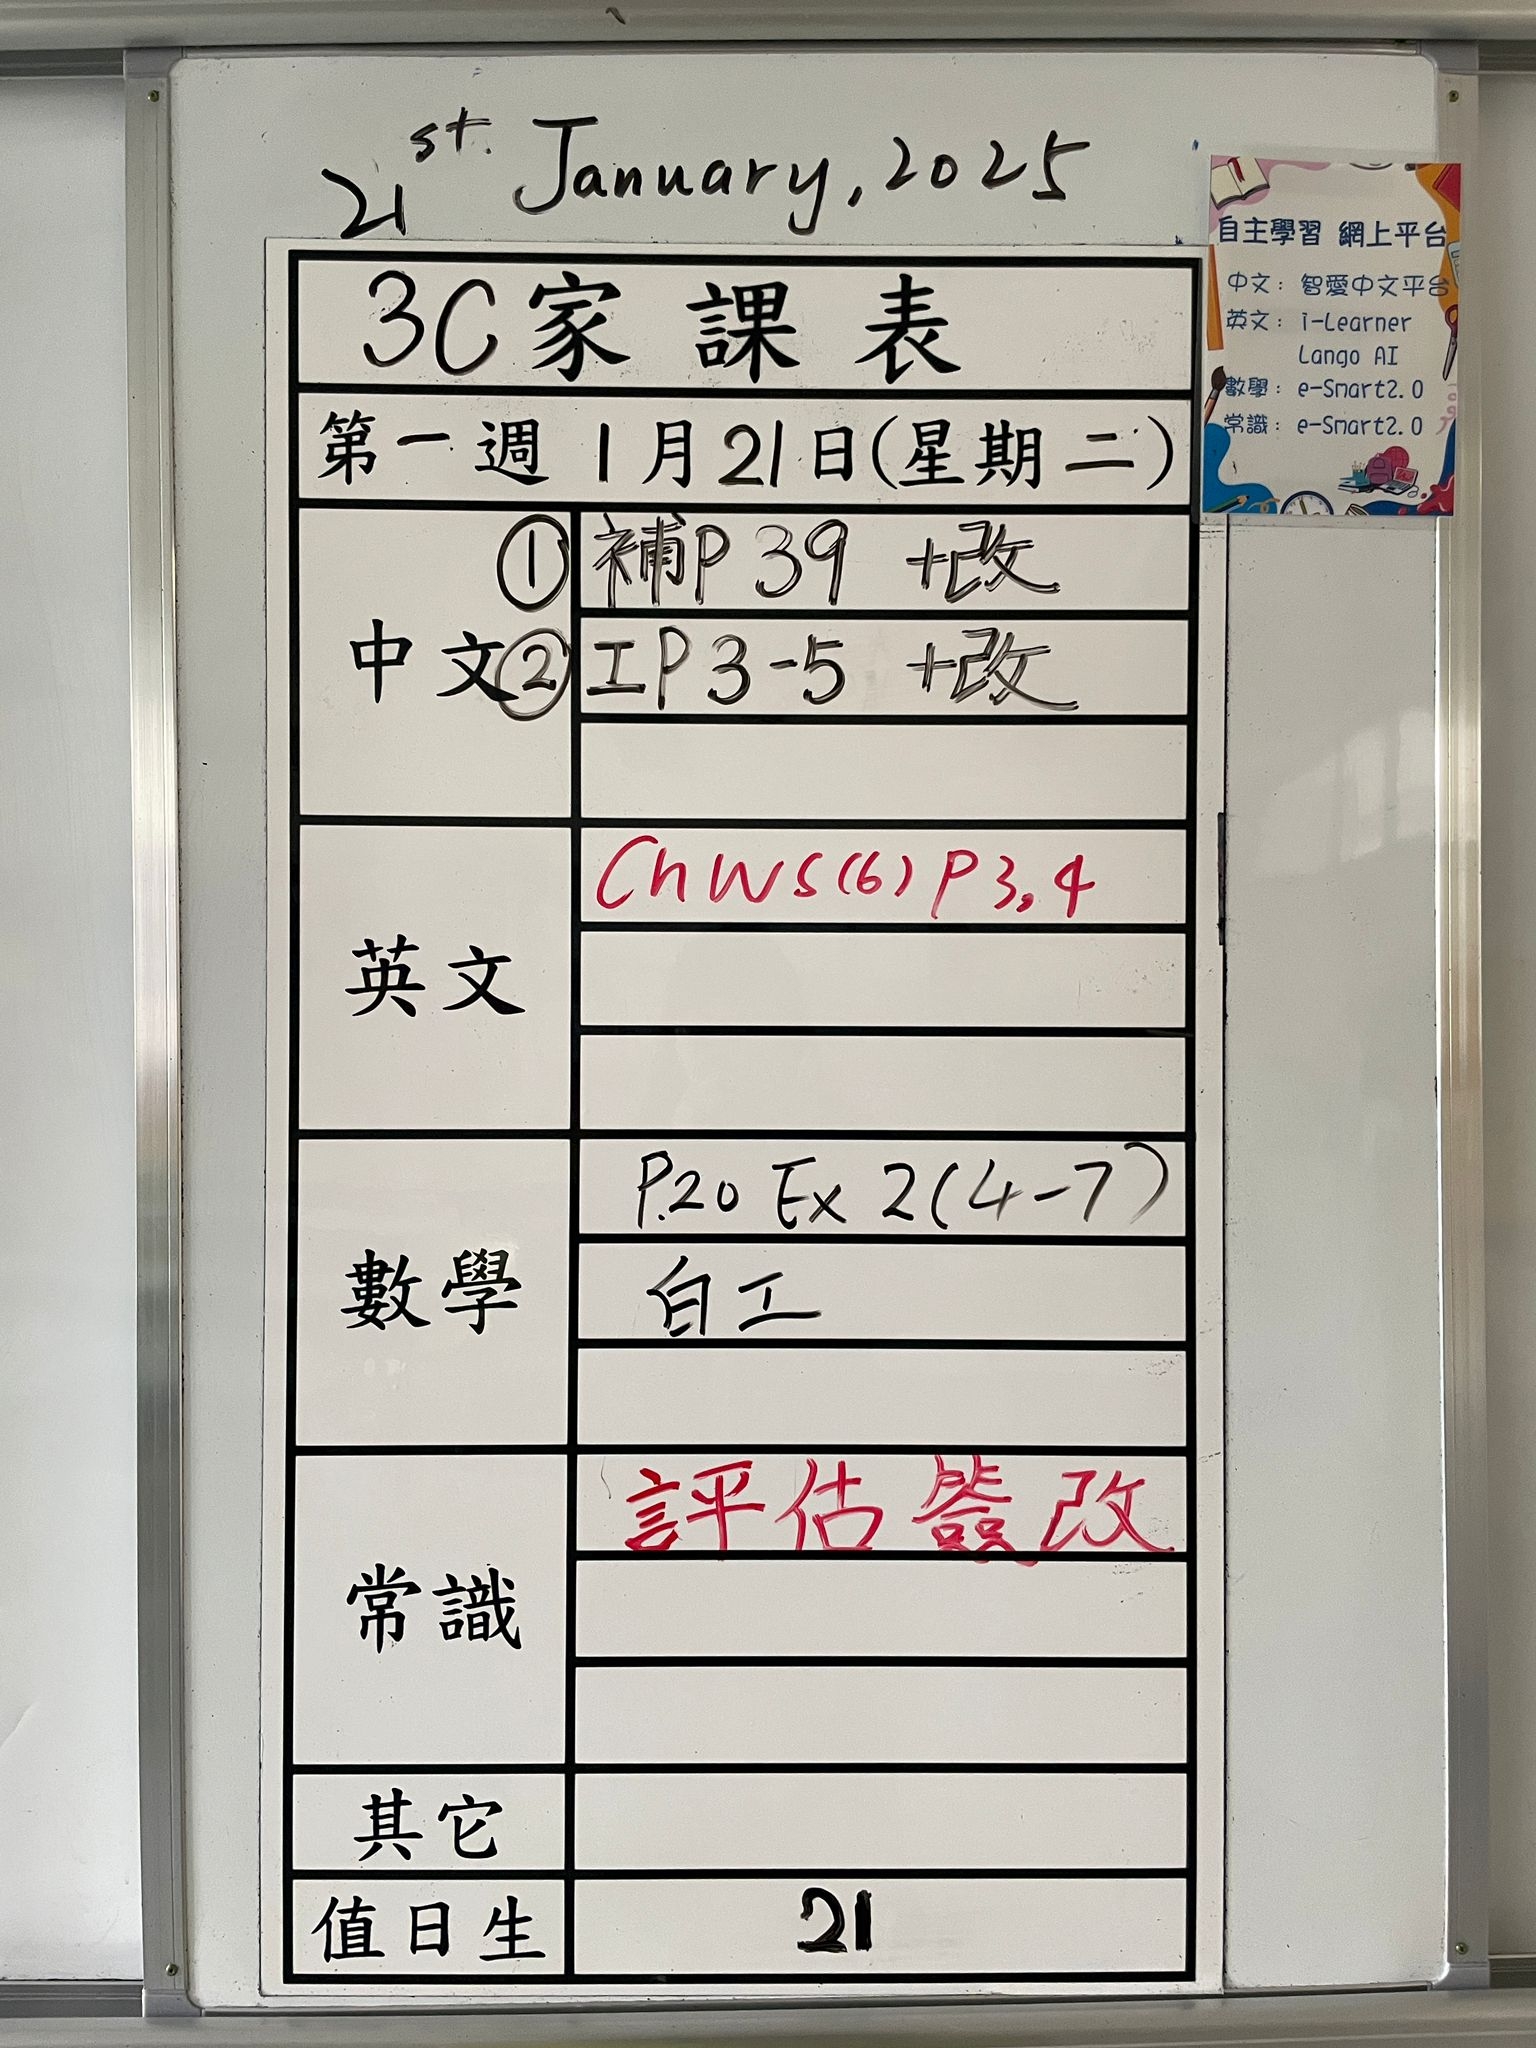 21st. January, 2025
自主學習 網上平台
中文: 智愛中文平台
英文: i-Learner
Lango AI
數學: e-Smart2.0
常識: e-Smart2.0
3C家課表
第一週 1月21日(星期二)
中文
① 補P39 +改
② 工P3-5 +改
英文
Ch WS(6) P3,4
數學
P.20 Ex 2(4-7)
白工
常識
評估簽改
其它
值日生 21